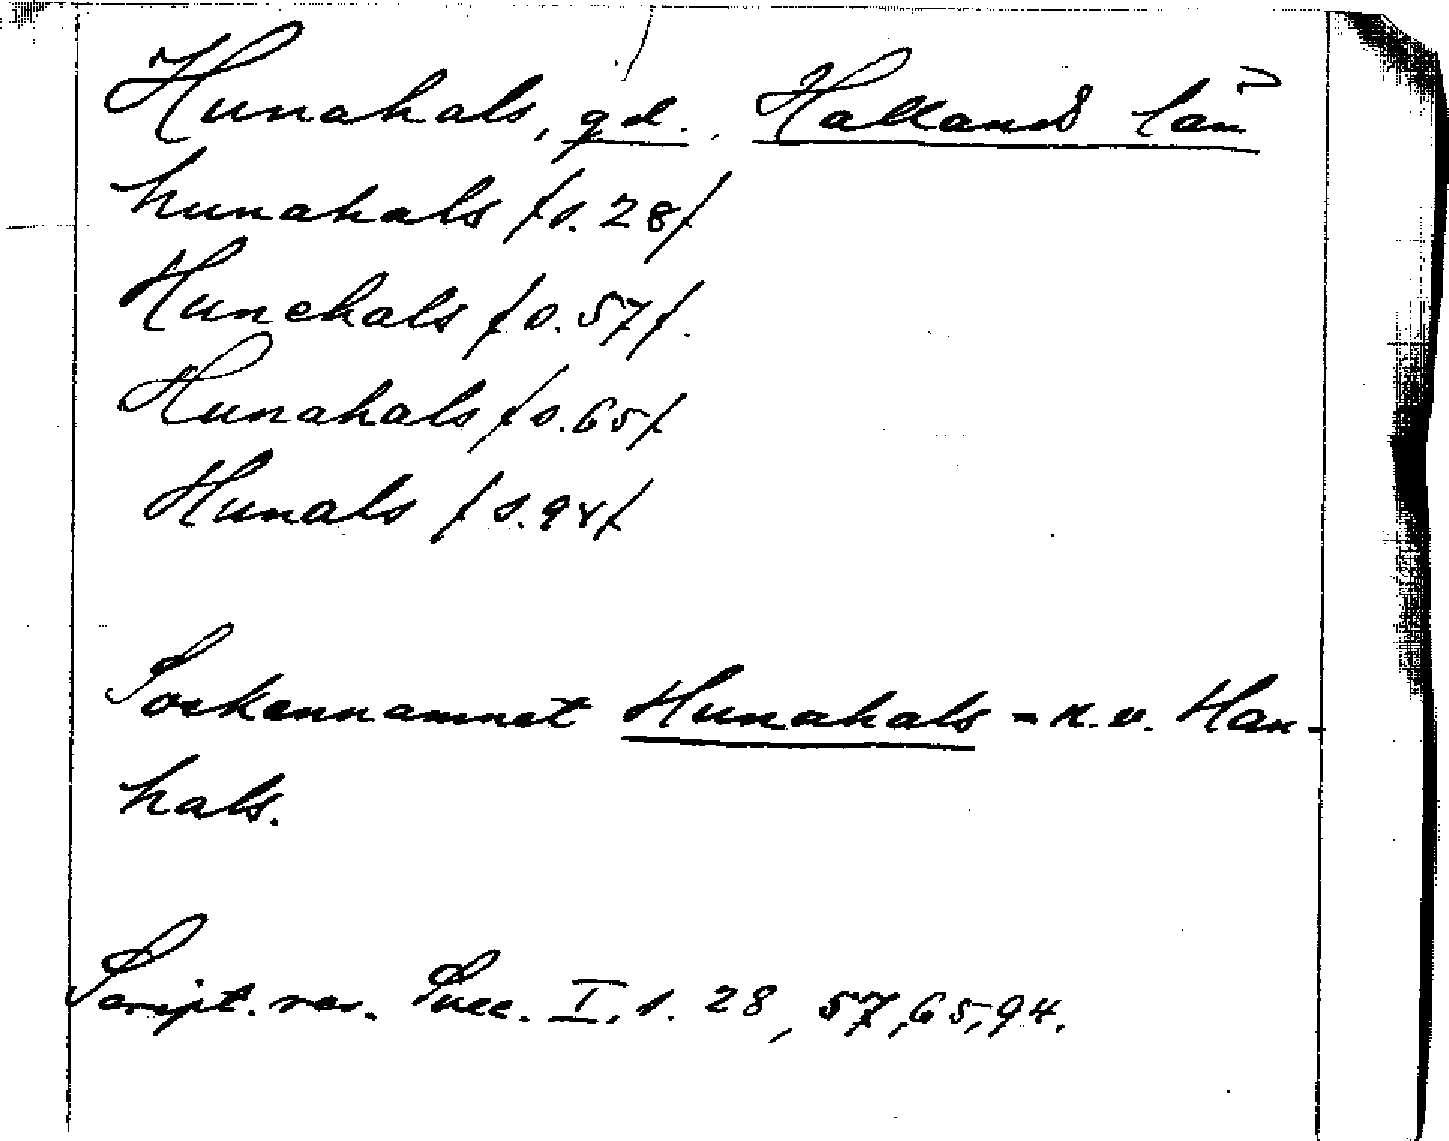 Hunahals, gd. Hallands län
hunahals /s. 28/
Hunehals /s. 57/.
Hunahals /s. 65/
Hunals /s. 94/
Sockennamnet Hunahals = n.v. Han-
hals.
Script. rer. Suec. I, s. 28, 57, 65, 94.